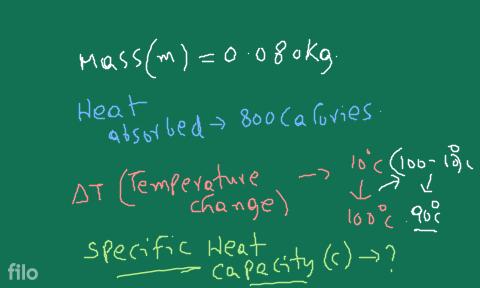 Mass(m) = 0.080kg.
Heat
absorbed → 800 Calories.
ΔT (Temperature change) → 10°C (100-10)°C
↓ ↓
100°C 90°C
Specific Heat
capacity (c) → ?
filo